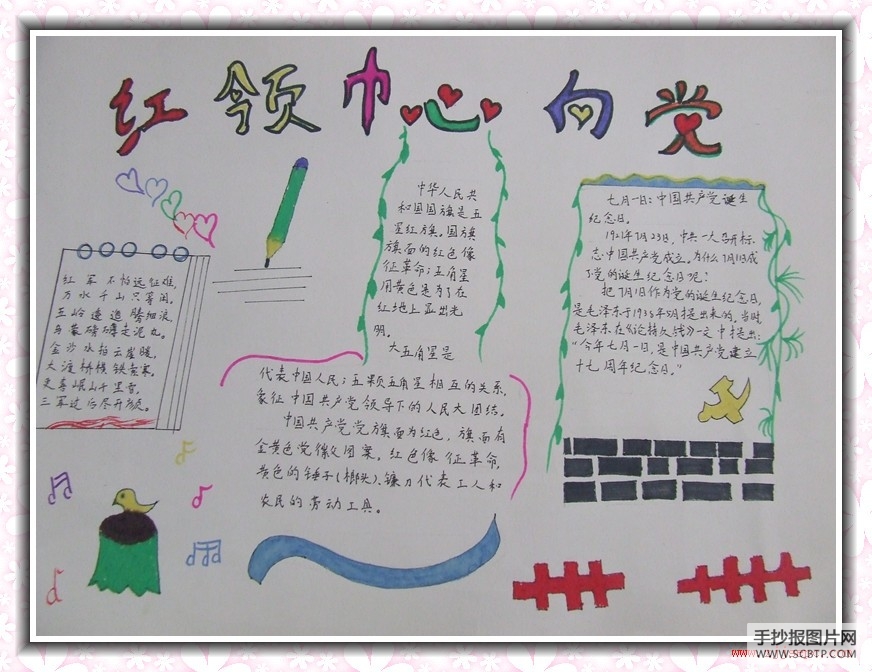 红领巾心向党
红军不怕远征难,
万水千山只等闲。
五岭逶迤腾细浪,
乌蒙磅礴走泥丸。
金沙水拍云崖暖,
大渡桥横铁索寒。
更喜岷山千里雪,
三军过后尽开颜。
中华人民共
和国国旗是五
星红旗。国旗
旗面的红色像
征革命;五角星
用黄色是为了在
红地上显出光
明。
大五角星是
代表中国人民;五颗五角星相互的关系,
象征中国共产党领导下的人民大团结。
中国共产党党旗面为红色,旗面有
金黄色党徽图案。红色像征革命,
黄色的锤子(榔头)、镰刀代表工人和
农民的劳动工具。
七月一日:中国共产党诞生
纪念日。
1921年7月23日,中共一大召开标
志中国共产党成立。为什么7月1日成
了党的诞生纪念日呢?
把7月1日作为党的诞生纪念日,
是毛泽东于1938年5月提出来的。当时,
毛泽东在《论持久战》一文中提出:
“今年七月一日,是中国共产党建立
十七周年纪念日。”
手抄报图片网
WWW.SCBTP.COM